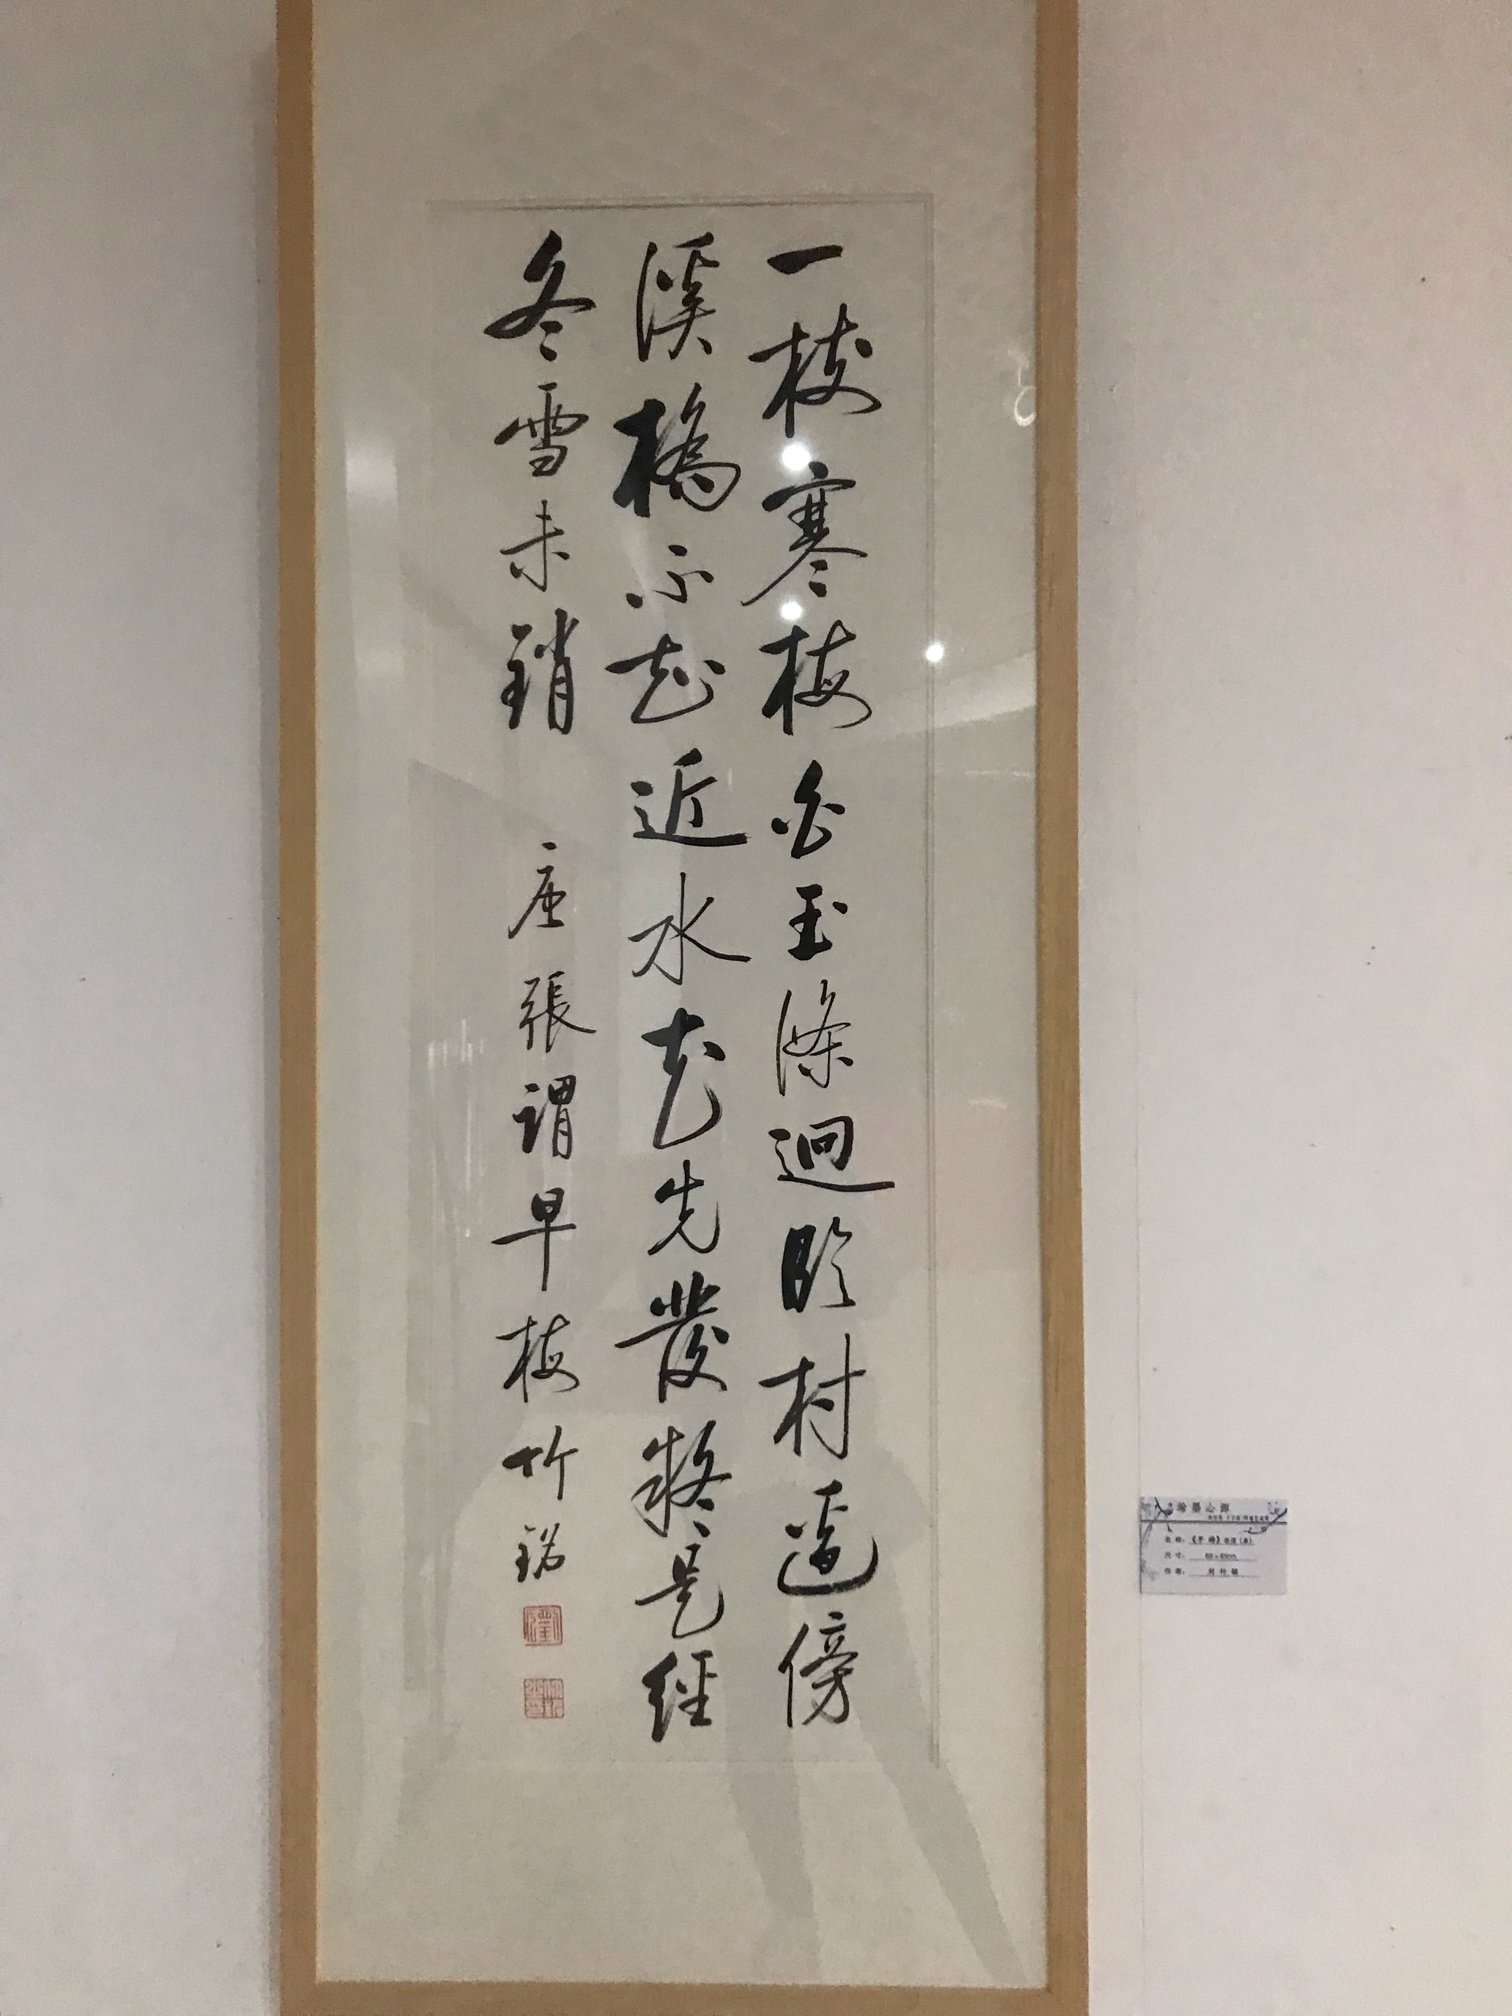 一枝寒梅白玉條迥臨村邊傍
溪橋不知近水花先發疑是經
冬雪未銷
唐張謂早梅竹銘
翰墨心源
名称：《早梅》
尺寸：
作者：